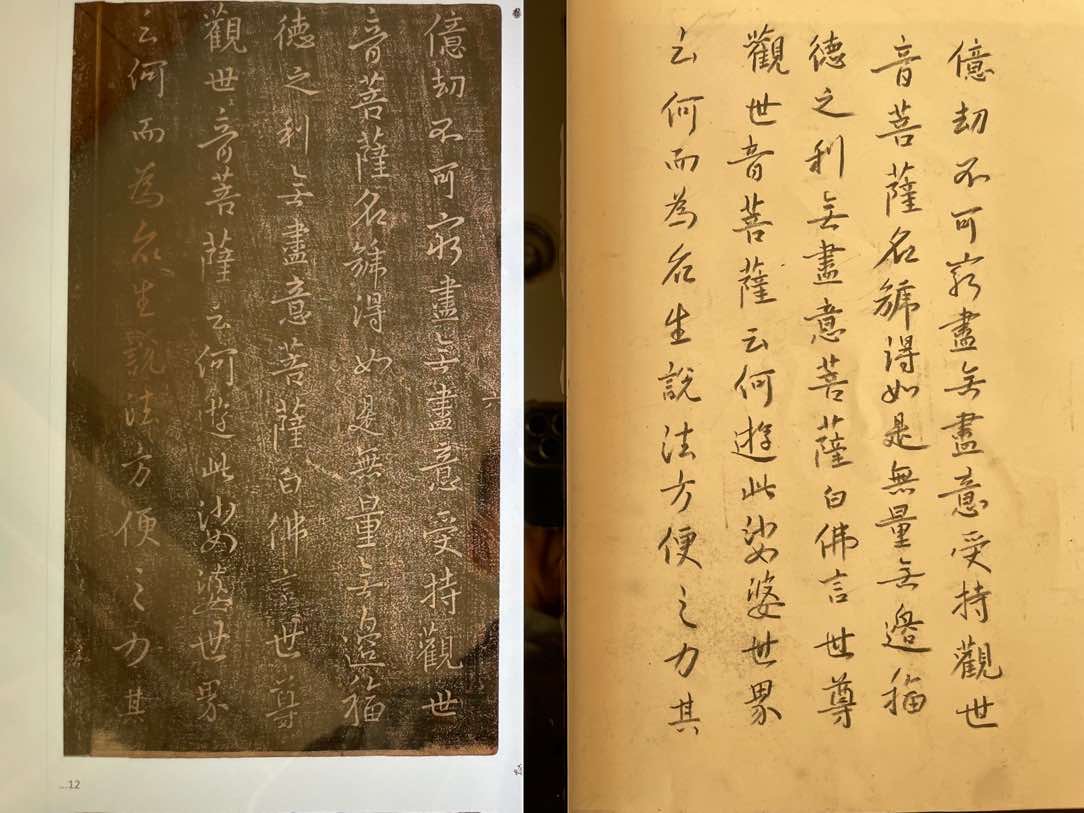 億劫不可窮盡无盡意受持觀世
音菩薩名號得如是無量无邊福
德之利无盡意菩薩白佛言世尊
觀世音菩薩云何遊此娑婆世界
云何而為眾生說法方便之力其
...12
億劫不可窮盡无盡意受持觀世
音菩薩名號得如是無量无邊福
德之利无盡意菩薩白佛言世尊
觀世音菩薩云何遊此娑婆世界
云何而為眾生說法方便之力其